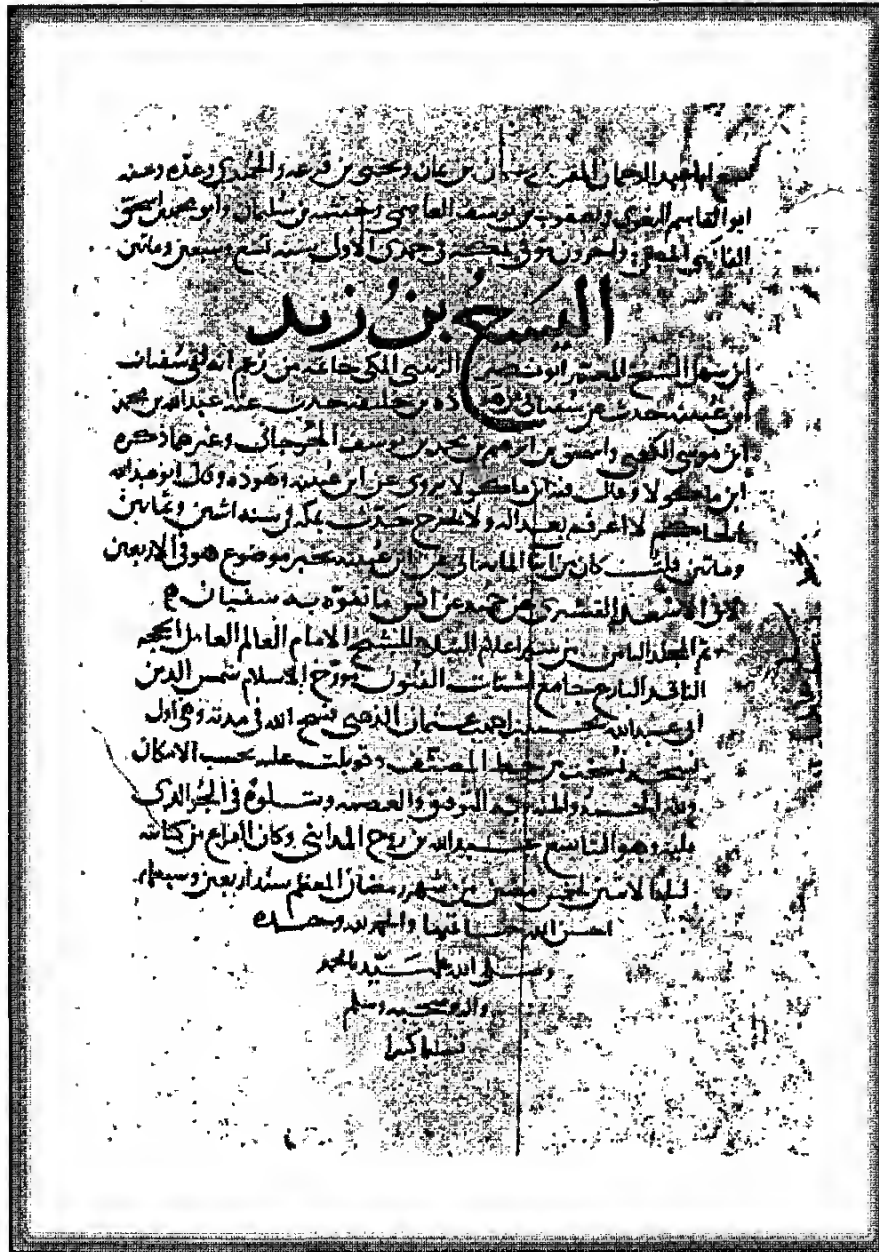 سمع ابا عبد الرحمان المقرئ وعثمان بن يمان ويحيى بن قزعه والحميدي وعده وعنه
ابو القاسم البغوي ويعقوب بن يوسف العاصمي وخيثمه بن سليمان وابو محمد بن اسحق
الفاكهي المصري واخرون توفي بمكه في جمدى الاول سنه تسع وسبعين وماتين
اليسع بن زيد
ابن سهل الشيخ المعمر ابو نصر الزينبي المكي خاتمه من زعم انه لقي سفيان
ابن عيينه حدث عن سفيان وهوذه بن خليفه حدث عنه عبد الله بن محمد
ابن موسى الكعبي واسحق بن ابرهيم بن محمد بن يوسف الجرجاني وغيرهما ذكره
ابن ماكولا وقال فيه ابن ماكولا يروي عن ابن عيينه وهوذه وقال ابو عبد الله
الحاكم لا اعرفه بعداله ولا بجرح حدث بمكه في سنه اثنين وثمانين
وماتين قلت كان من ابنا المايه اتى عن ابن عيينه بخبر موضوع هو في الاربعين
لابي الاسعد القشيري عن حميد عن انس ما تفوه به سفيان
تم المجلد الثامن من سير اعلام النبلا للشيخ الامام العالم العامل الحجه
الناقد البارع جامع اشتات الفنون مورخ الاسلام شمس الدين
ابي عبد الله محمد بن احمد بن عثمان الذهبي فسح الله في مدته وهي اول
نسخه نسخت من خط المصنف وقوبلت عليه بحسب الامكان
ولله الحمد والمنه وبه التوفيق والعصمه ويتلوه في الجزء الذي
يليه وهو التاسع عبد الله بن روح المدائني وكان الفراغ من كتابته
ليله الاثنين لخمس مضين من شهر رمضان المعظم سنه اربعين وسبعمايه
احسن الله خاتمتها والحمد لله وحده
وصلى الله على سيدنا محمد
واله وصحبه وسلم
تسليما كثيرا